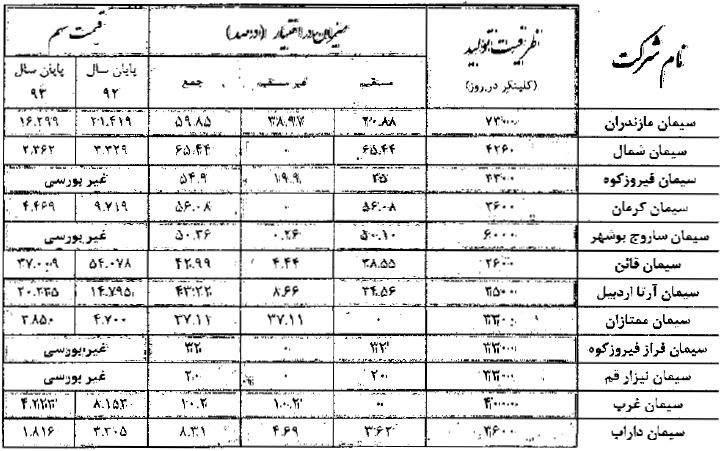 نام شرکت ظرفیت تولید (کلینکر در روز) میزان در اختیار (درصد) قیمت سهم
مستقیم غیر مستقیم جمع پایان سال ۹۲ پایان سال ۹۳
سیمان مازندران ۵۹.۸۵ ۲۱.۴۱۹ ۱۶.۲۹۹
سیمان شمال ۴۲۶۰ ۶۵.۴۴ ۰ ۶۵.۴۴ ۳.۳۲۹ ۲.۳۶۲
سیمان فیروزکوه ۳۵ ۱۹.۹ ۵۴.۹ غیر بورسی
سیمان کرمان ۳۶۰۰ ۵۶.۰۸ ۰ ۵۶.۰۸ ۹.۷۱۹ ۴.۴۶۹
سیمان ساروج بوشهر ۶۰۰۰ ۵۰.۱۰ ۰.۲۶ ۵۰.۳۶ غیر بورسی
سیمان قائن ۲۶۰۰ ۳۸.۵۵ ۴.۴۴ ۴۲.۹۹ ۵۴.۰۷۸ ۳۷.۰۰۹
سیمان آرتا اردبیل ۳۴.۵۶ ۸.۶۶ ۴۳.۲۲ ۱۴.۷۹۵
سیمان ممتازان ۰ ۳۷.۱۱ ۳۷.۱۱ ۴.۷۰۰ ۳.۸۵۰
سیمان فراز فیروزکوه ۰ غیر بورسی
سیمان نیزار قم ۲۰ ۰ ۲۰ غیر بورسی
سیمان غرب ۱۰.۲ ۱۰.۲ ۸.۱۵۳
سیمان داراب ۳.۶۲ ۴.۶۹ ۸.۳۱ ۳.۲۰۵ ۱.۸۱۶